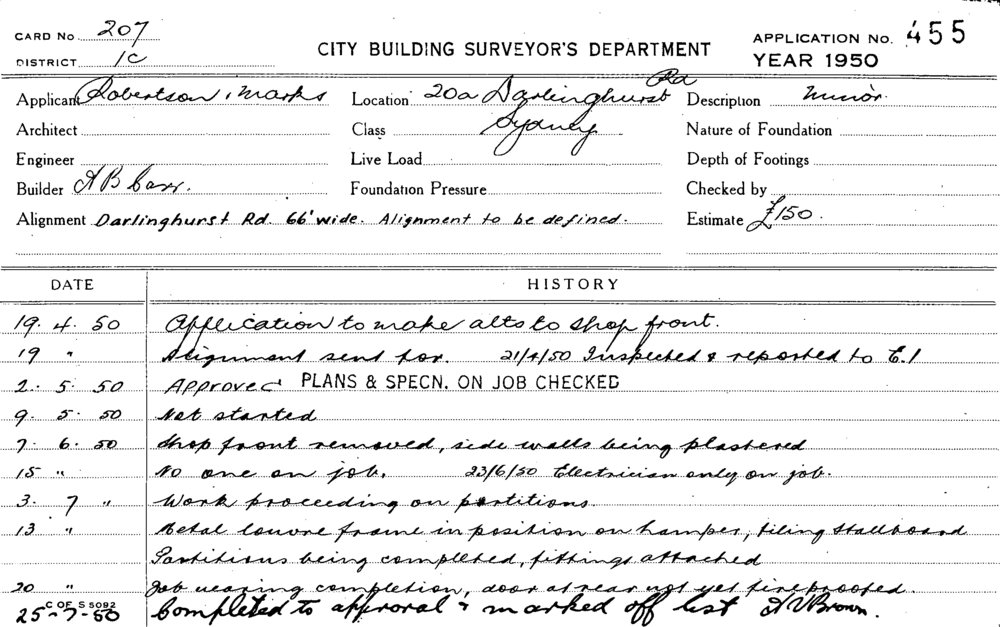 CARD No 207
DISTRICT 1C
CITY BUILDING SURVEYOR'S DEPARTMENT
APPLICATION No. 455
YEAR 1950
Applicant Robertson & Marks Location 20a Darlinghurst Rd Description Minor.
Architect Class Sydney Nature of Foundation
Engineer Live Load Depth of Footings
Builder A B Carr. Foundation Pressure Checked by
Alignment Darlinghurst Rd. 66' wide. Alignment to be defined. Estimate £150.
DATE HISTORY
19. 4. 50 Application to make alts to shop front.
19 " Alignment send for. 21/4/50 Inspected & reported to E.1
2. 5. 50 Approved PLANS & SPECN. ON JOB CHECKED
9. 5. 50 Not started
7. 6. 50 Shop front removed, side walls being plastered
15 " No one on job. 23/6/50 Electrician only on job.
3. 7 " Work proceeding on partitions.
13 " Metal louvre frame in position on hamper, tiling stallboard
Partitions being completed, fittings attached
20 " Job nearing completion, door at rear not yet fireproofed.
C OF S 5092
25-7-50 Completed to approval & marked off list A V Brown.